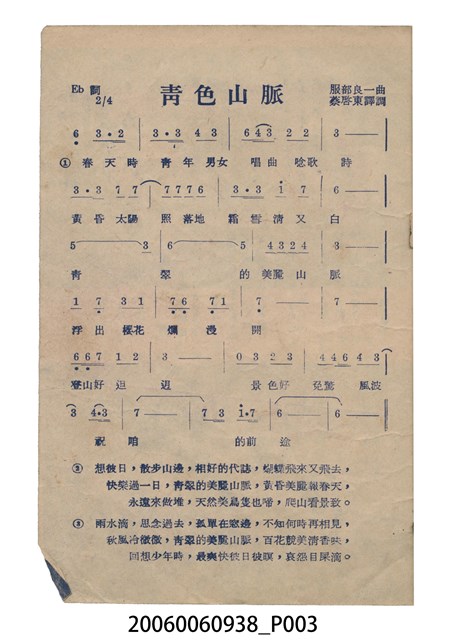 Eb 調 2/4
青色山脈
服部良一曲
蔡啓東譯詞
6 3・2 | 3・3 4 3 | 6 4 3 2 2 | 3 —— |
① 春天時 青年男女 唱曲唸歌詩
3・3 7 7 | 7 7 7 6 | 3・3 1 7 | 6 —— |
黃昏太陽 照落地 霜雪清又白
5 —— 3 | 6 —— 5 | 4 3 2 4 | 3 —— |
青 翠 的美麗山脈
1 7 3 1 | 7 6 7 1 | 7 —— | 7 —— |
浮出櫻花 爛漫開
6 6 7 1 2 | 3 —— | 0 3 2 3 | 4 4 6 4 3
山好 迌 邊 景色好 免驚 風波
3 4・3 | 7 —— | 7 3 1・7 | 6 —— | 6 —— |
祝咱 的前途
② 想彼日,散步山邊,相好的代誌,蝴蝶飛來又飛去,
快樂過一日,青翠的美麗山脈,黃昏美麗報春天,
永遠來做堆,天然美鳥隻也啼,爬山看景致。
③ 雨水滴,思念過去,孤單在窓邊,不知何時再相見,
秋風冷微微,青翠的美麗山脈,百花競美清香味,
回想少年時,最爽快彼日彼暝,哀怨目屎滴。
20060060938_P003